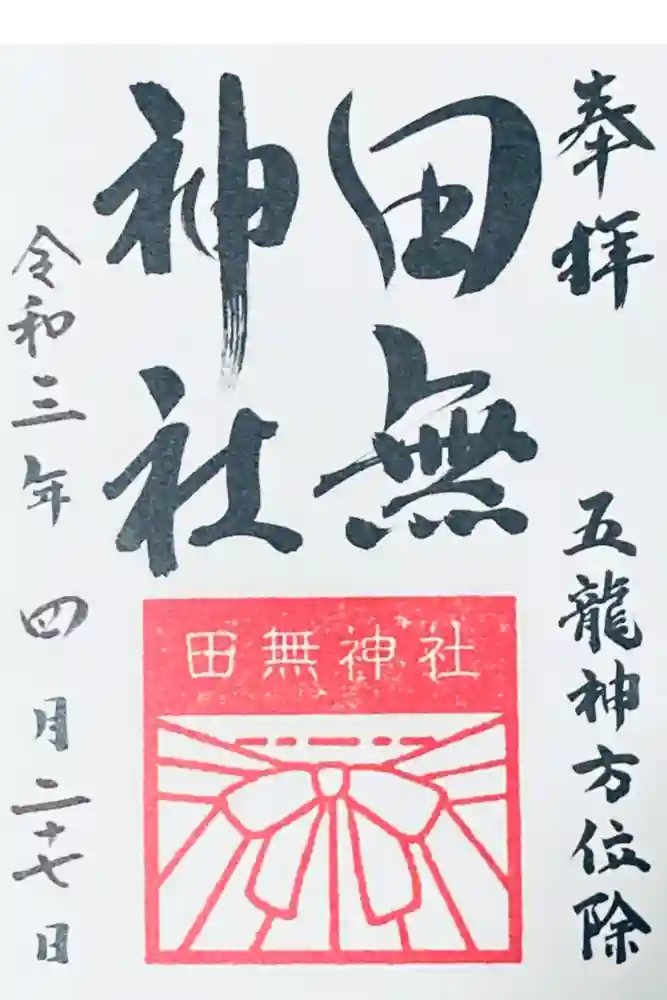 奉拝
五龍神方位除
田無
神社
田無神社
令和三年四月二十七日